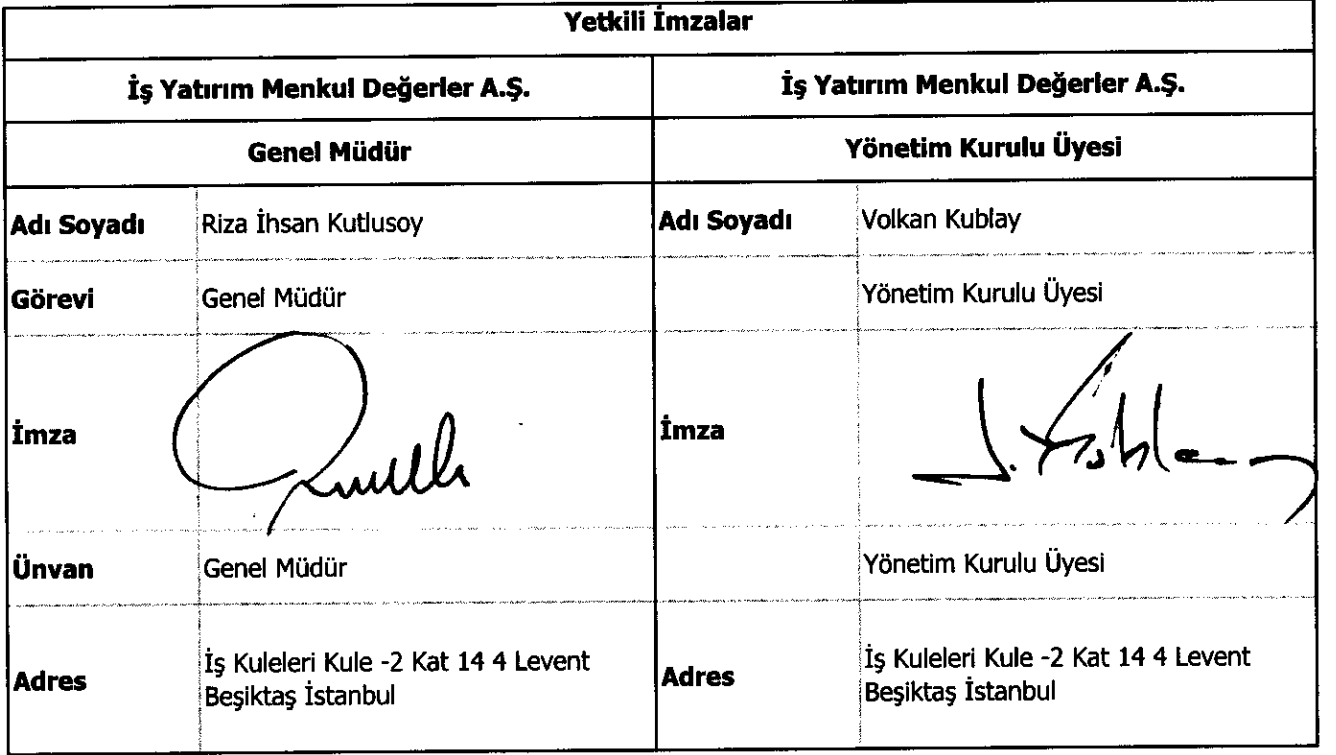 Yetkili İmzalar
İş Yatırım Menkul Değerler A.Ş. İş Yatırım Menkul Değerler A.Ş.
Genel Müdür Yönetim Kurulu Üyesi
Adı Soyadı Riza İhsan Kutlusoy Adı Soyadı Volkan Kublay
Görevi Genel Müdür Yönetim Kurulu Üyesi
İmza İmza
Ünvan Genel Müdür Yönetim Kurulu Üyesi
Adres İş Kuleleri Kule -2 Kat 14 4 Levent
Beşiktaş İstanbul
Adres İş Kuleleri Kule -2 Kat 14 4 Levent
Beşiktaş İstanbul